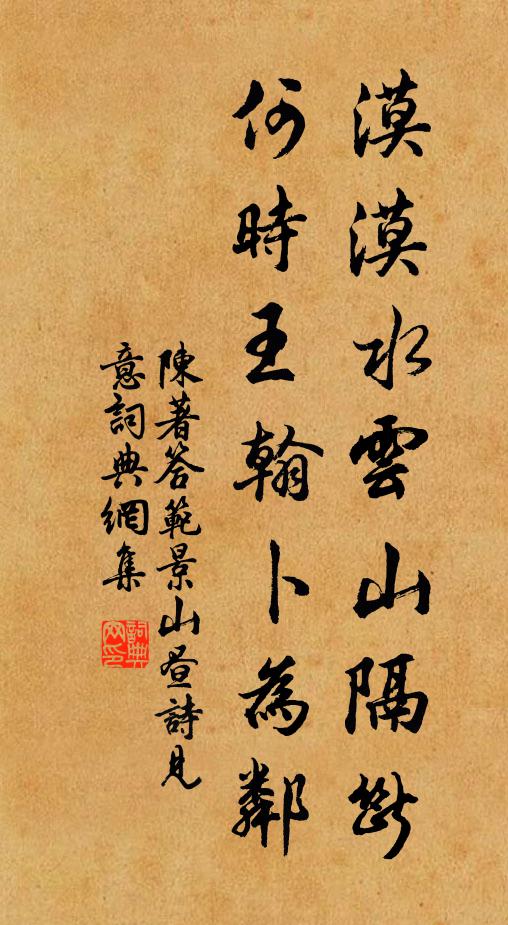 漠漠水雲山隔斷
何時王翰卜為鄰
陳著答範景山疊詩見
意詞典網集
詞典
网印